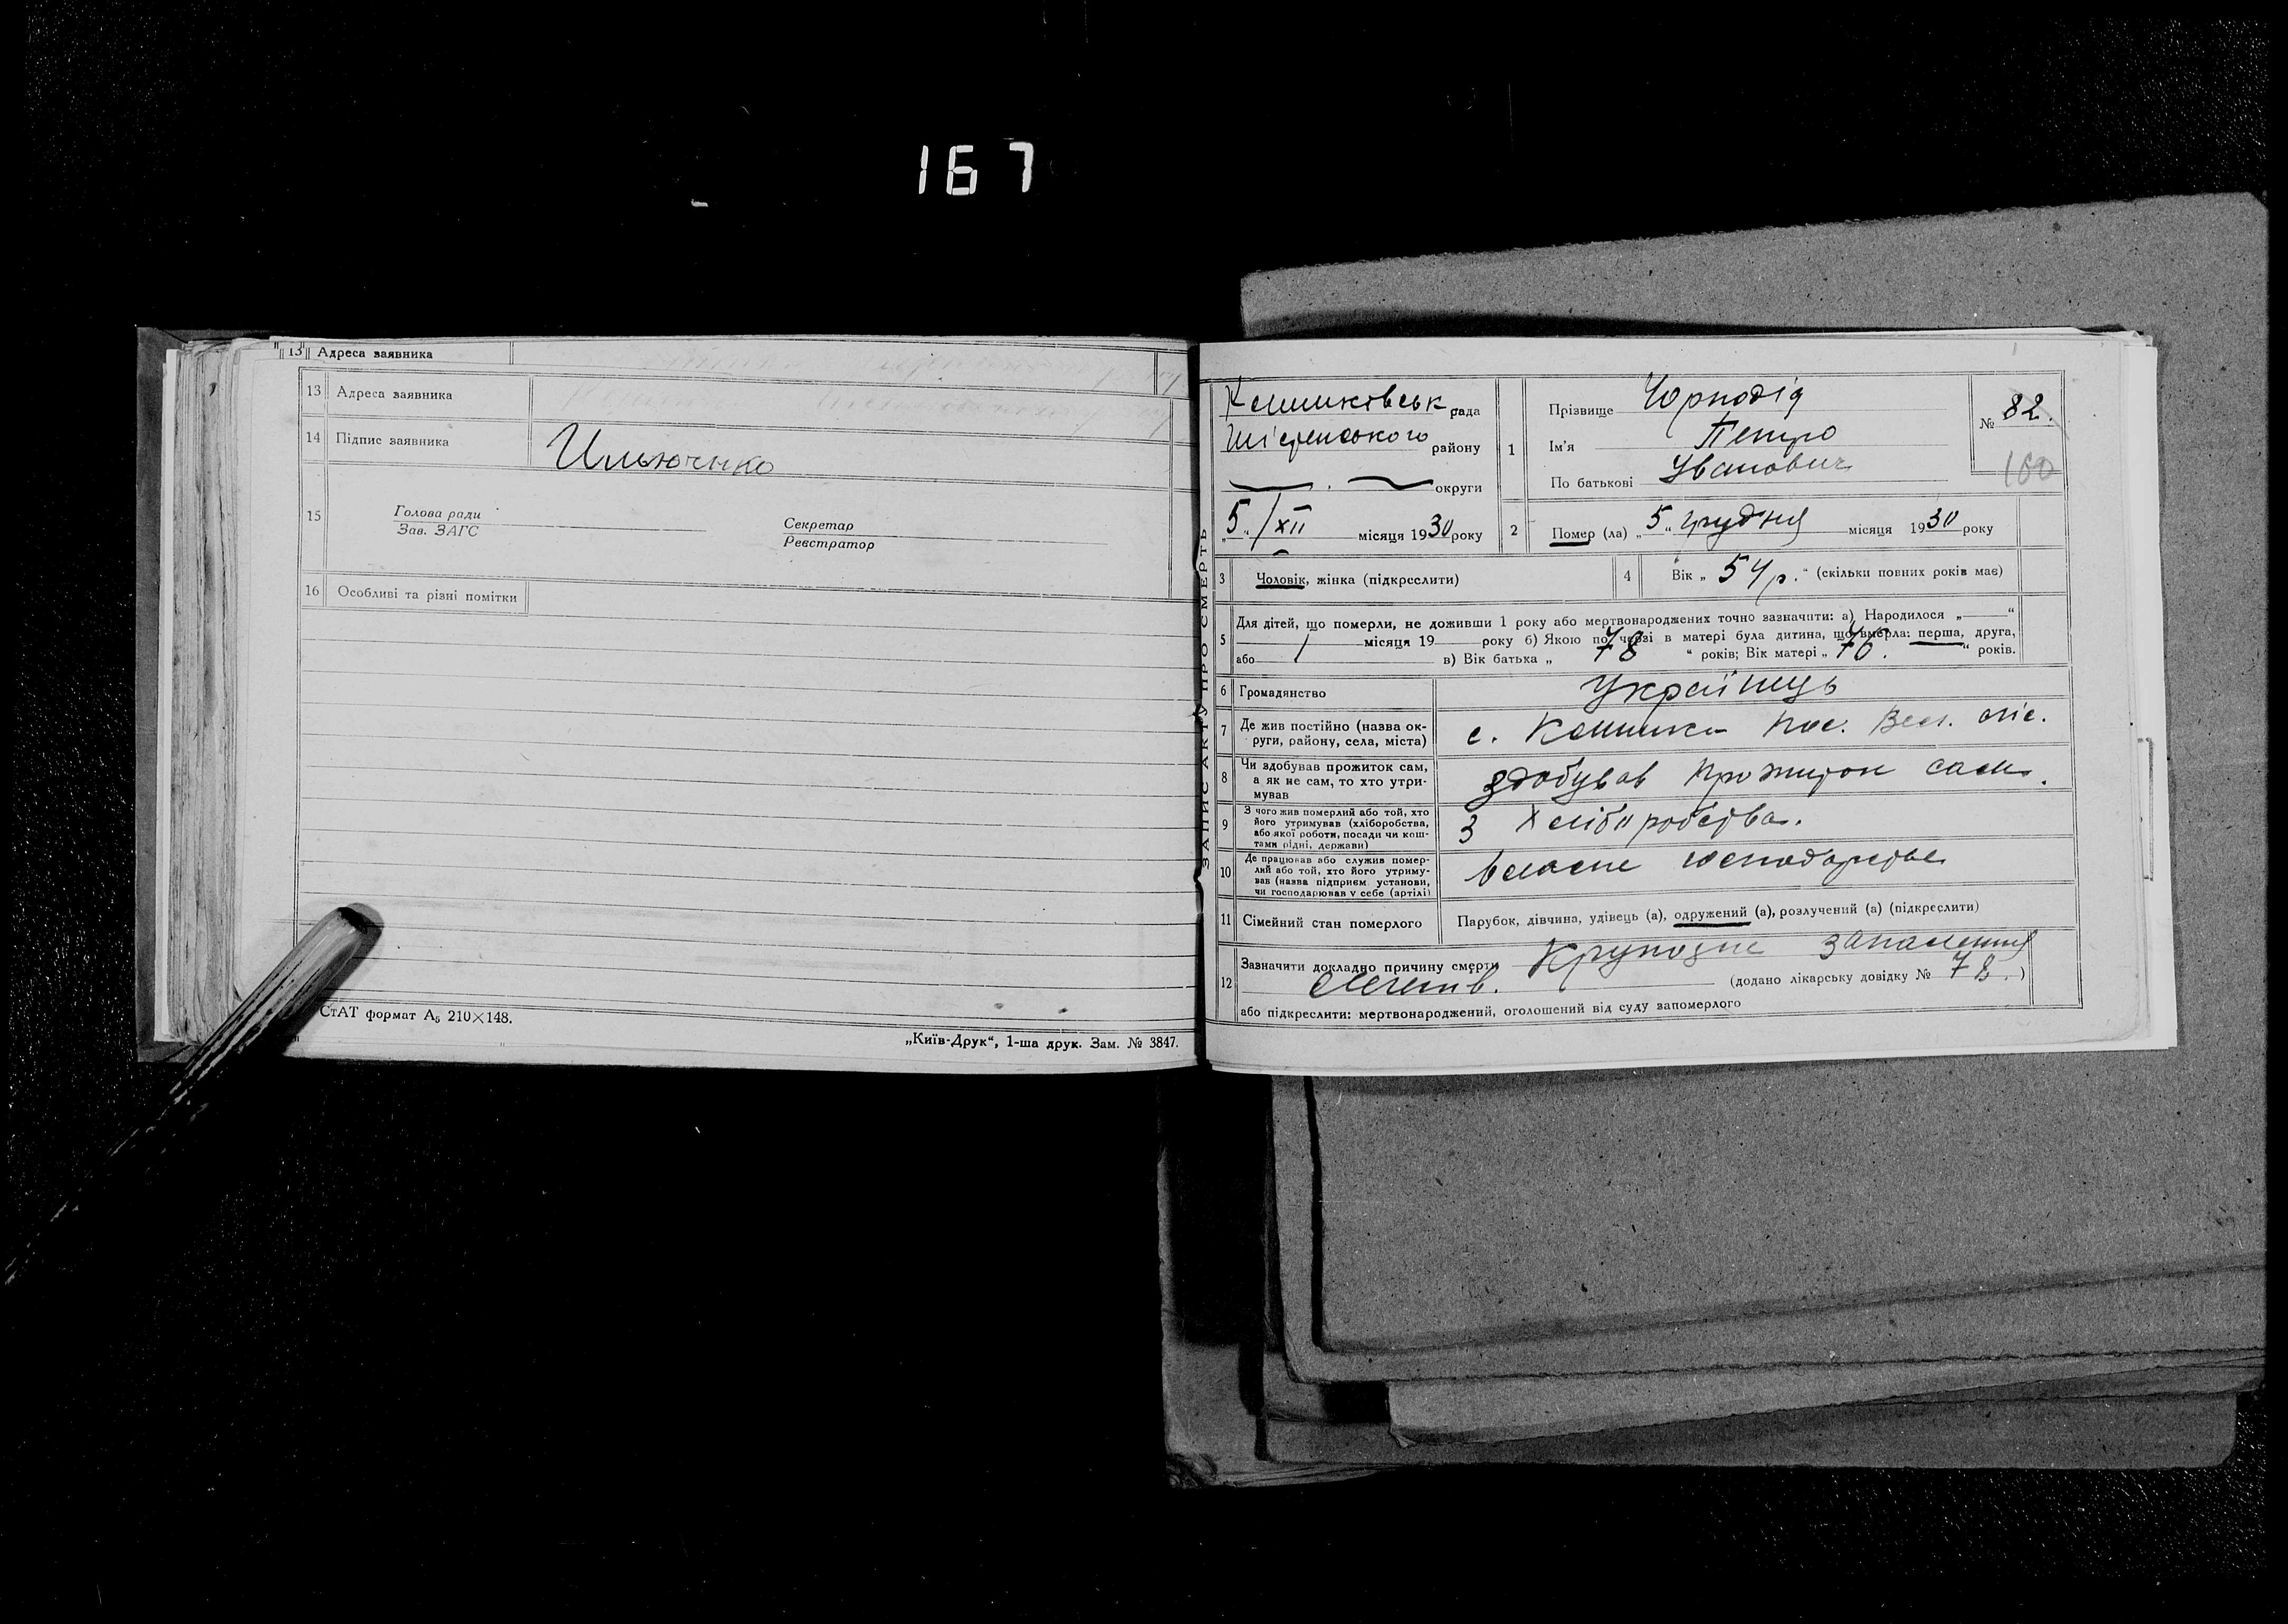 167
13 Адреса заявника
13 Адреса заявника
14 Підпис заявника Ильюченко
15 Голова ради
Зав. ЗАГС
Секретар
Реєстратор
16 Особливі та різні помітки
СтАТ формат А₅ 210×148.
„Київ-Друк“, 1-ша друк. Зам. № 3847.
ЗАПИС АКТУ ПРО СМЕРТЬ
рада
району
округи
„5“ /XII місяця 1930 року
1 Прізвище Чорнодід
Ім'я Петро
По батькові Іванович
№ 82.
160
2 Помер (ла) „5“ грудня місяця 1930 року
3 Чоловік, жінка (підкреслити)
4 Вік „54 р.“ (скільки повних років має)
5 Для дітей, що померли, не доживши 1 року або мертвонароджених точно зазначити: а) Народилося „ “
місяця 19 року б) Якою по черзі в матері була дитина, що вмерла: перша, друга,
або в) Вік батька „78“ років; Вік матері „76.“ років.
6 Громадянство Українець
7 Де жив постійно (назва ок-
руги, району, села, міста) с.
8 Чи здобував прожиток сам,
а як не сам, то хто утри-
мував
здобував прожиток сам.
9 З чого жив померлий або той, хто
його утримував (хліборобства,
або якої роботи, посади чи кош-
тами рідні, держави)
З Хліборобства.
10 Де працював або служив помер-
лий або той, хто його утриму-
вав (назва підприєм. установи,
чи господарював у себе (артілі)
власне господарство
11 Сімейний стан померлого Парубок, дівчина, удівець (а), одружений (а), розлучений (а) (підкреслити)
12 Зазначити докладно причину смерти Крупозне запалення
легенів. (додано лікарську довідку № 78.)
або підкреслити: мертвонароджений, оголошений від суду запомерлого